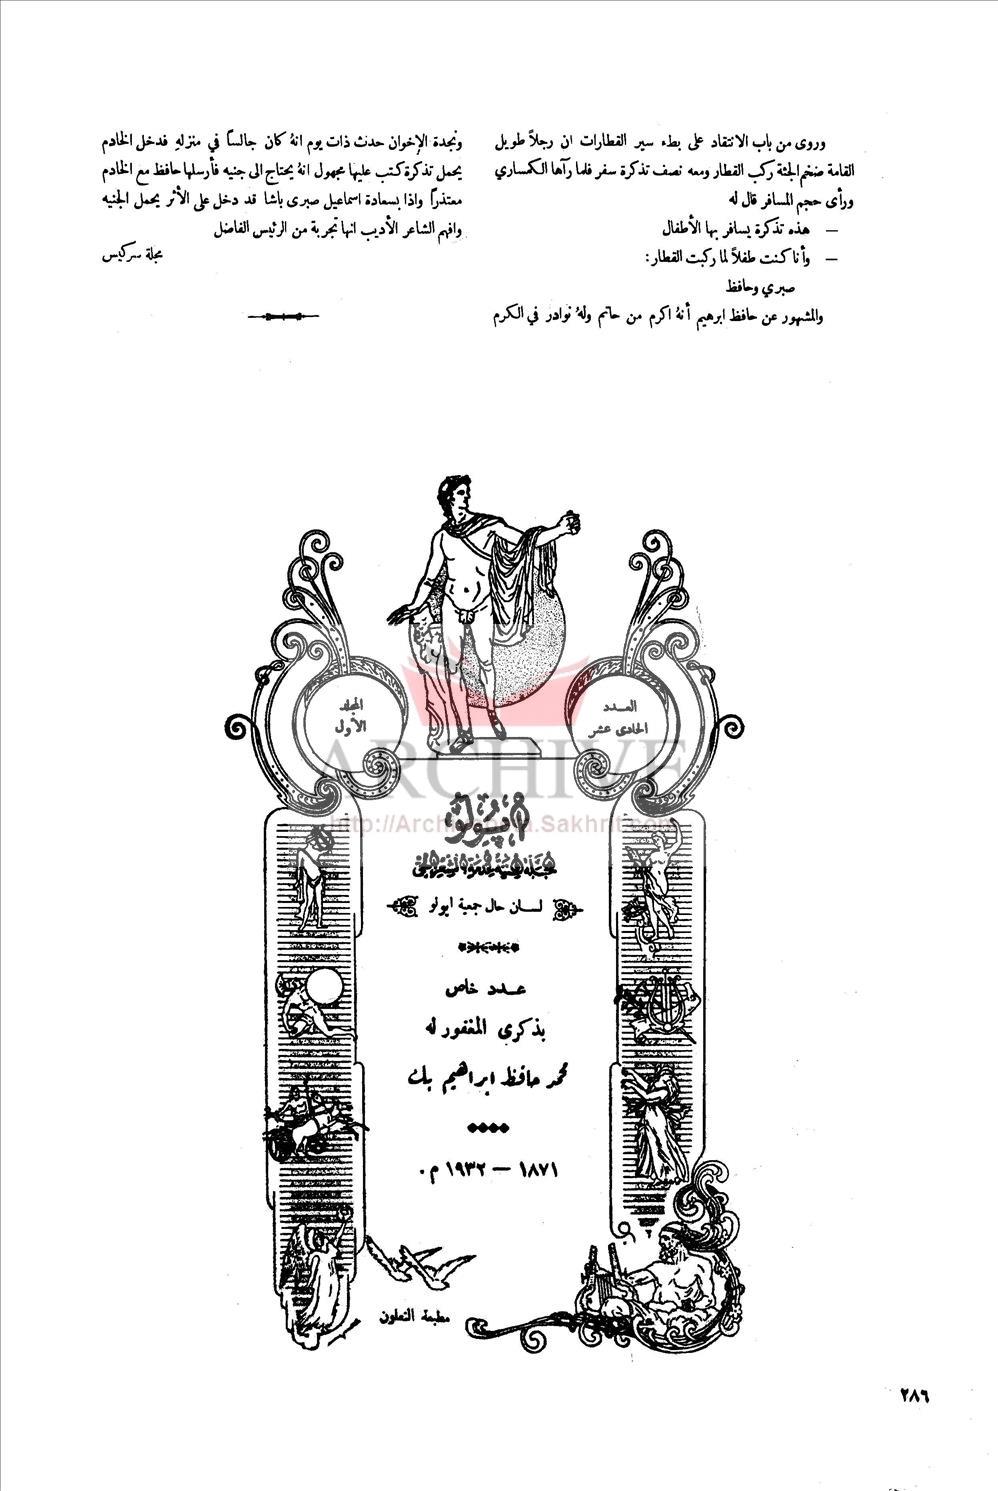 وروى من باب الانتقاد على بطء سير القطارات ان رجلاً طويل
القامة ضخم الجثة ركب القطار ومعه نصف تذكرة سفر فلما رآها الكمساري
ورأى حجم المسافر قال له
— هذه تذكرة يسافر بها الأطفال
— وأنا كنت طفلاً لما ركبت القطار :
صبري وحافظ
والمشهور عن حافظ ابرهيم أنهُ اكرم من حاتم ولهُ نوادر في الكرم
ونجدة الإخوان حدث ذات يوم انهُ كان جالساً في منزلهِ فدخل الخادم
يحمل تذكرة كتب عليها مجهول انهُ يحتاج الى جنيه فأرسلها حافظ مع الخادم
معتذراً واذا بسعادة اسماعيل صبرى باشا قد دخل على الأثر يحمل الجنيه
وافهم الشاعر الأديب انها تجربة من الرئيس الفاضل
مجلة سركيس
العـدد
الحادى عشر
المجلد
الأول
ARCHIVE
http://Archivebeta.Sakhrit.com
أپولو
لسان حال جمعية اپولو
عـدد خاص
بذكرى المغفور له
محمد حافظ ابراهيم بك
١٨٧١ — ١٩٣٢ م.
مطبعة التعاون
٢٨٦